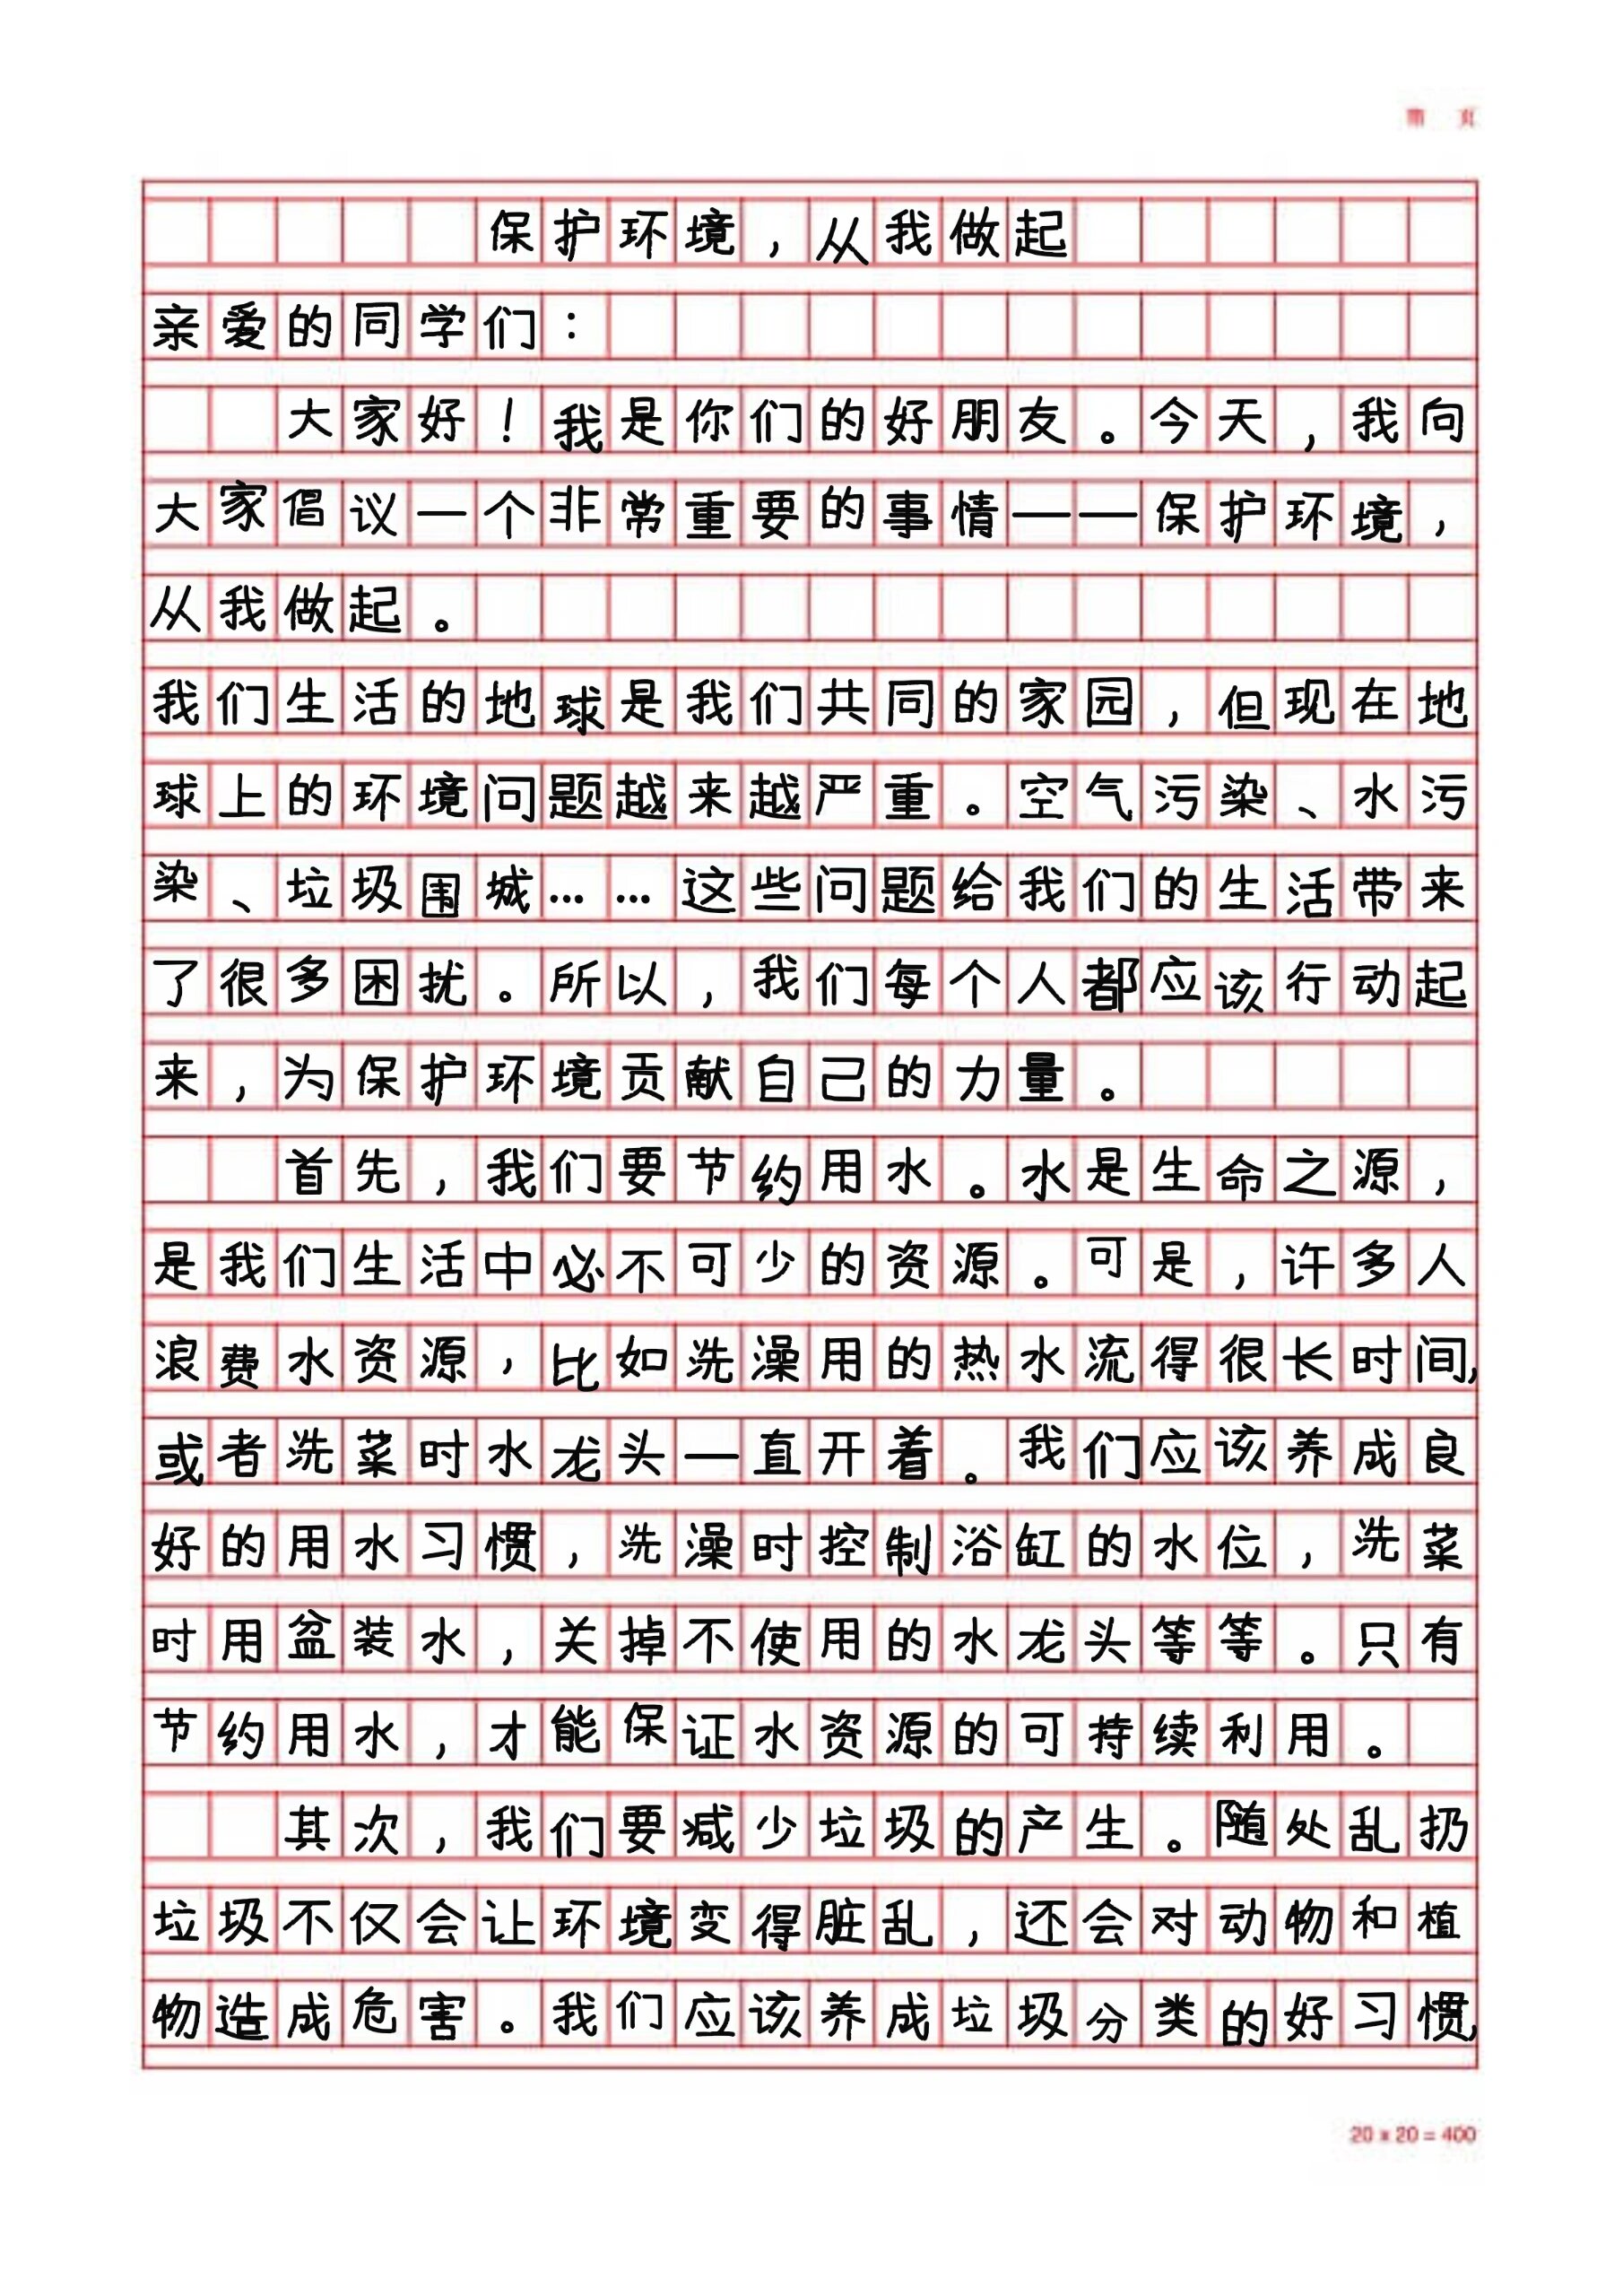 第 页
保护环境，从我做起
亲爱的同学们：
大家好！我是你们的好朋友。今天，我向
大家倡议一个非常重要的事情——保护环境，
从我做起。
我们生活的地球是我们共同的家园，但现在地
球上的环境问题越来越严重。空气污染、水污
染、垃圾围城……这些问题给我们的生活带来
了很多困扰。所以，我们每个人都应该行动起
来，为保护环境贡献自己的力量。
首先，我们要节约用水。水是生命之源，
是我们生活中必不可少的资源。可是，许多人
浪费水资源，比如洗澡用的热水流得很长时间，
或者洗菜时水龙头一直开着。我们应该养成良
好的用水习惯，洗澡时控制浴缸的水位，洗菜
时用盆装水，关掉不使用的水龙头等等。只有
节约用水，才能保证水资源的可持续利用。
其次，我们要减少垃圾的产生。随处乱扔
垃圾不仅会让环境变得脏乱，还会对动物和植
物造成危害。我们应该养成垃圾分类的好习惯，
20 x 20 = 400